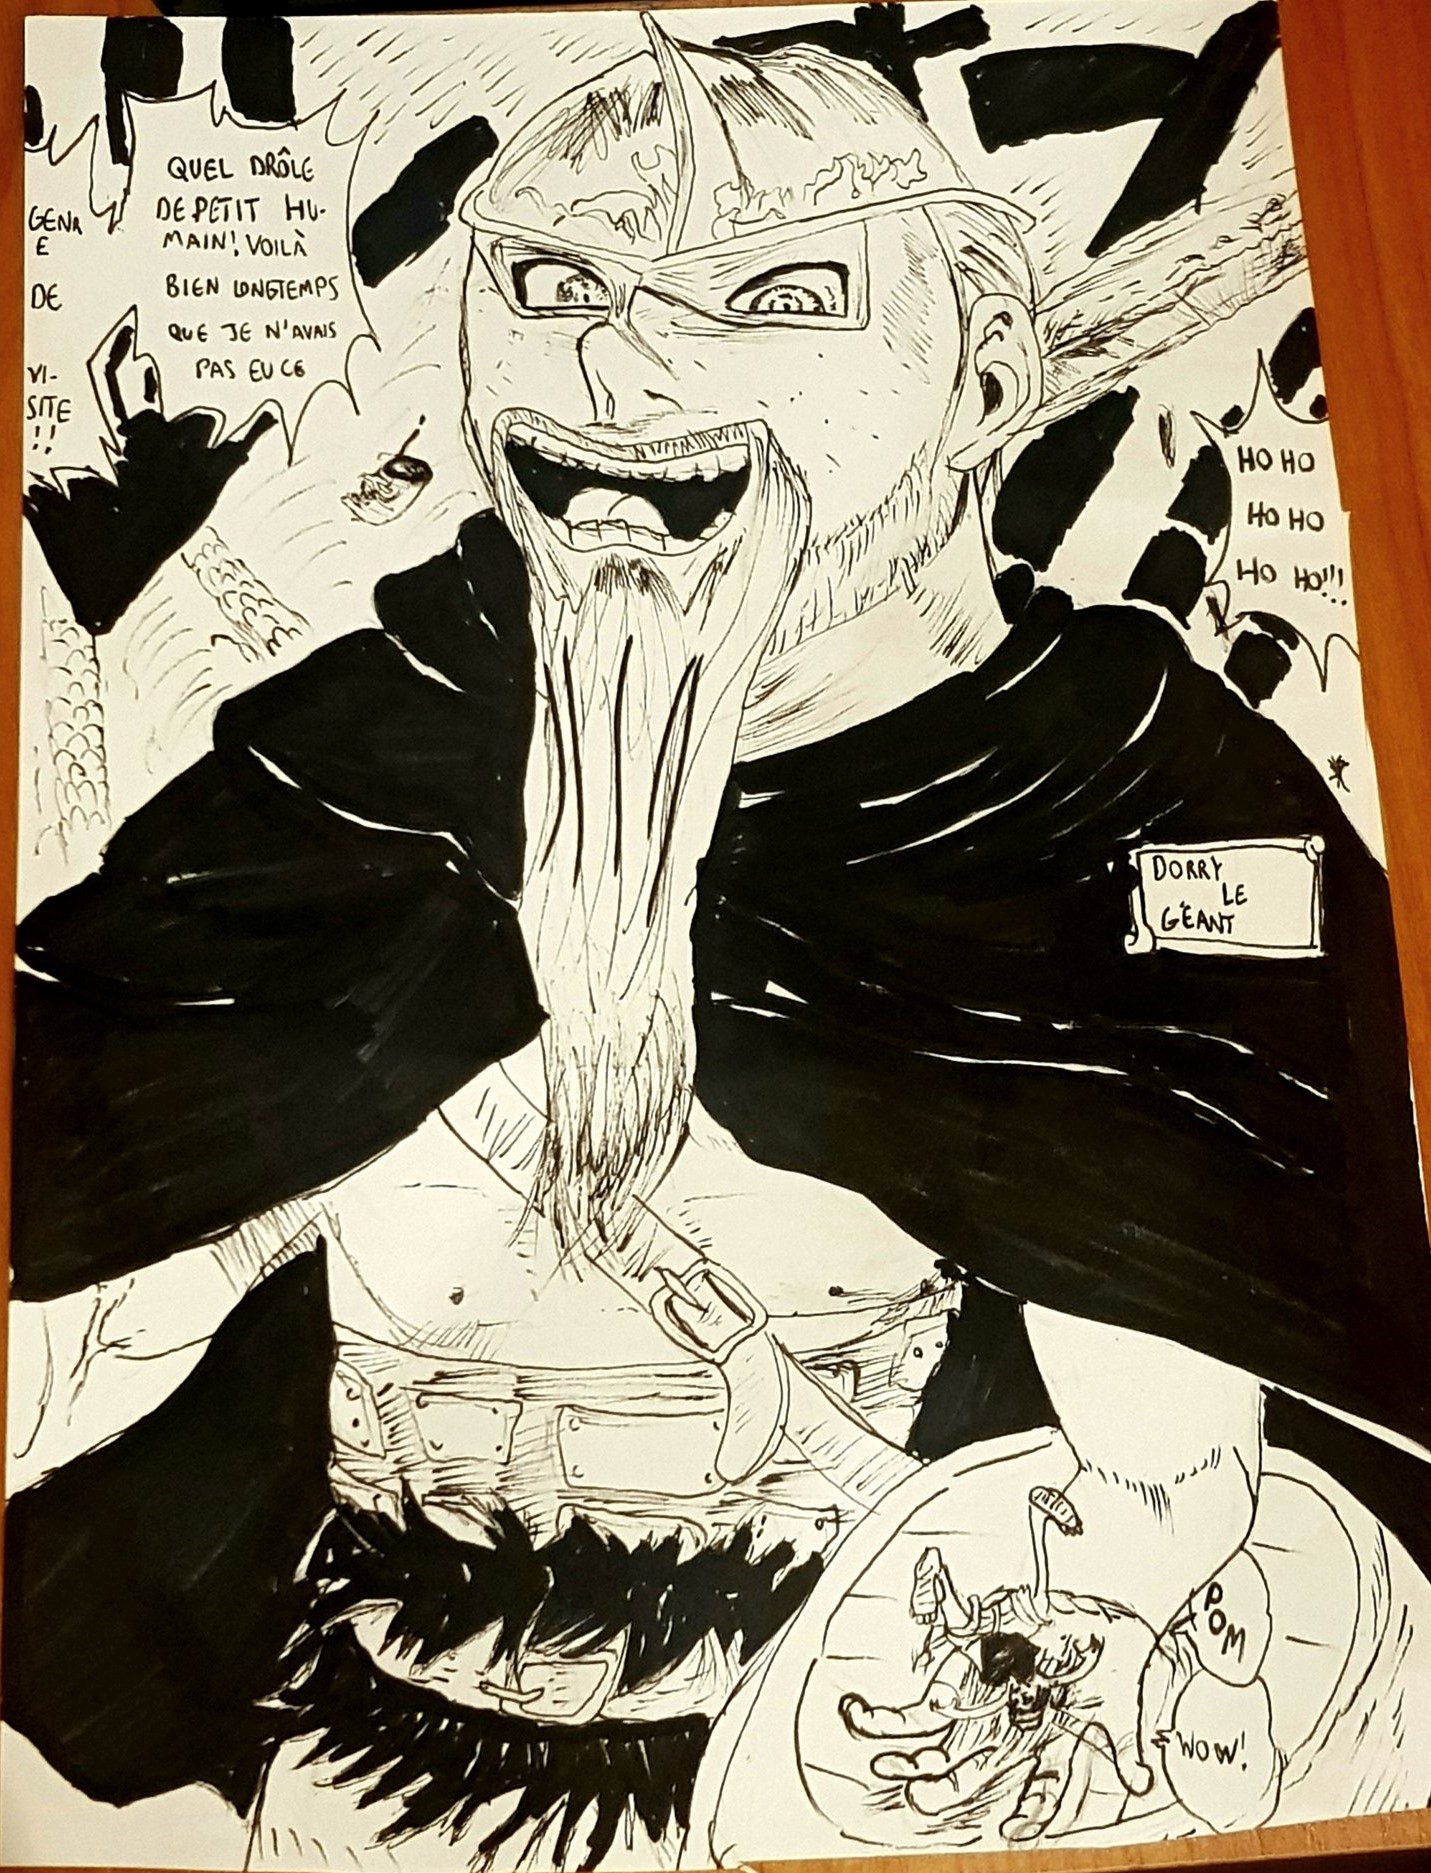 QUEL DRÔLE
DE PETIT HU-
MAIN! VOILÀ
BIEN LONGTEMPS
QUE JE N'AVAIS
PAS EU CE
GENR
E
DE
VI-
SITE
!!
HO HO
HO HO
HO HO!!!
DORRY
LE
GÉANT
POM
WOW!